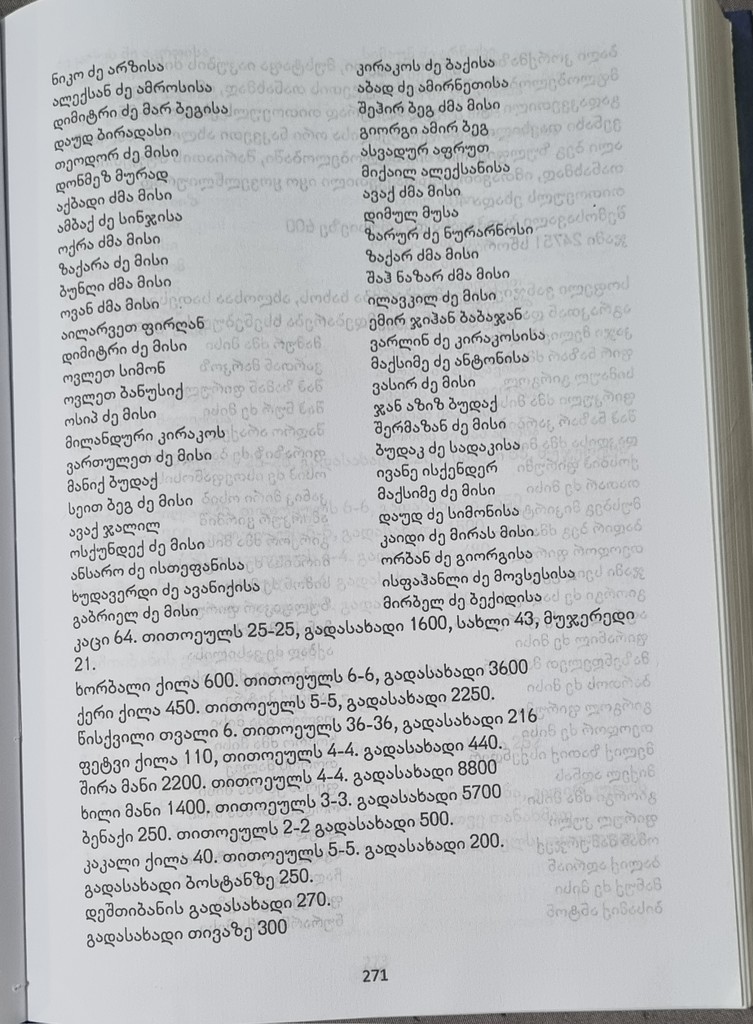 ნიკო ძე არზისა
ალექსან ძე ამროსისა
დიმიტრი ძე მარ ბეგისა
დაუდ ბირადასი
თეოდორ ძე მისი
დონმეზ მურად
აქბადი ძმა მისი
ამბაქ ძე სინჯისა
ოქრა ძმა მისი
ზაქარა ძე მისი
ბუნღი ძმა მისი
ოვან ძმა მისი
აილარვეთ ფირღან
დიმიტრი ძე მისი
ოვლეთ სიმონ
ოვლეთ ბანუსიქ
ოსიპ ძე მისი
მილანდური კირაკოს
ვართულეთ ძე მისი
მანიქ ბუდაქ
სეით ბეგ ძე მისი
ავაქ ჯალილ
ოსქუნდექ ძე მისი
ანსარო ძე ისთეფანისა
ხუდავერდი ძე ავანიქისა
გაბრიელ ძე მისი
კირაკოს ძე ბაქისა
აბად ძე ამირნეთისა
შეჰირ ბეგ ძმა მისი
გიორგი ამირ ბეგ
ასვადურ აფრუთ
მიქაილ ალექსანისა
ავაქ ძმა მისი
დიმულ მუსა
ზარურ ძე ნურარნოსი
ზაქარ ძმა მისი
შაჰ ნაზარ ძმა მისი
ილავკილ ძე მისი
ემირ ჯიჰან ბაბაჯან
ვარლინ ძე კირაკოსისა
მაქსიმე ძე ანტონისა
ვასირ ძე მისი
ჯან აზიზ ბუდაქ
შერმაზან ძე მისი
ბუდაკ ძე სადაკისა
ივანე ისქენდერ
მაქსიმე ძე მისი
დაუდ ძე სიმონისა
კაიდი ძე მირას მისი
ორბან ძე გიორგისა
ისფაჰანლი ძე მოვსესისა
მირბელ ძე ბექიდისა
კაცი 64. თითოეულს 25-25, გადასახადი 1600, სახლი 43, მუჯერედი
21.
ხორბალი ქილა 600. თითოეულს 6-6, გადასახადი 3600
ქერი ქილა 450. თითოეულს 5-5, გადასახადი 2250.
წისქვილი თვალი 6. თითოეულს 36-36, გადასახადი 216
ფეტვი ქილა 110, თითოეულს 4-4. გადასახადი 440.
შირა მანი 2200. თითოეულს 4-4. გადასახადი 8800
ხილი მანი 1400. თითოეულს 3-3. გადასახადი 5700
ბენაქი 250. თითოეულს 2-2 გადასახადი 500.
კაკალი ქილა 40. თითოეულს 5-5. გადასახადი 200.
გადასახადი ბოსტანზე 250.
დეშთიბანის გადასახადი 270.
გადასახადი თივაზე 300
271